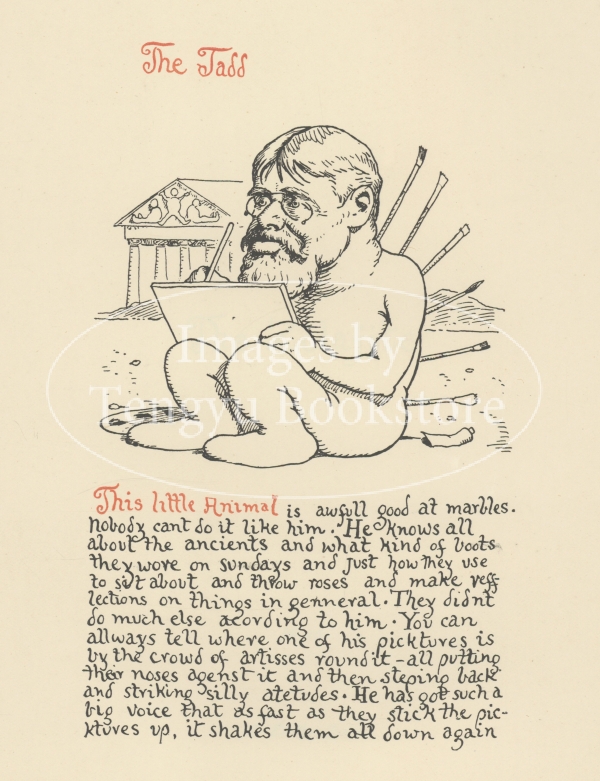 The Tadd
This little Animal is awfull good at marbles.
Nobody cant do it like him. He knows all
about the ancients and what kind of boots
they wore on sundays and just how they use
to sit about and throw roses and make reff-
lections on things in gennerral. They didnt
do much else acording to him. You can
allways tell where one of his picktures is
by the crowd of artisses round it - all putting
their noses agenst it and then steping back
and striking silly atetudes. He has got such a
big voice that as fast as they stick the pic-
ktures up, it shakes them all down again
Images by
Tengyu Bookstore